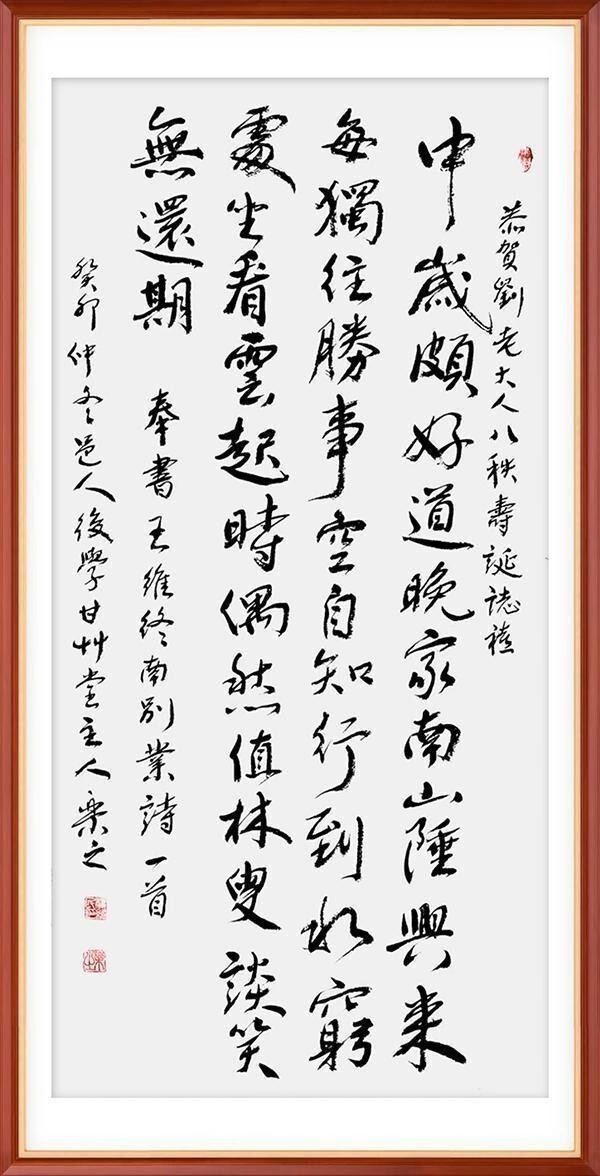 恭賀劉老大人八秩壽誕誌禧
中歲頗好道晚家南山陲興來
每獨往勝事空自知行到水窮
處坐看雲起時偶然值林叟談笑
無還期
奉書王維終南別業詩一首
癸卯仲冬邑人後學甘艸堂主人樂之